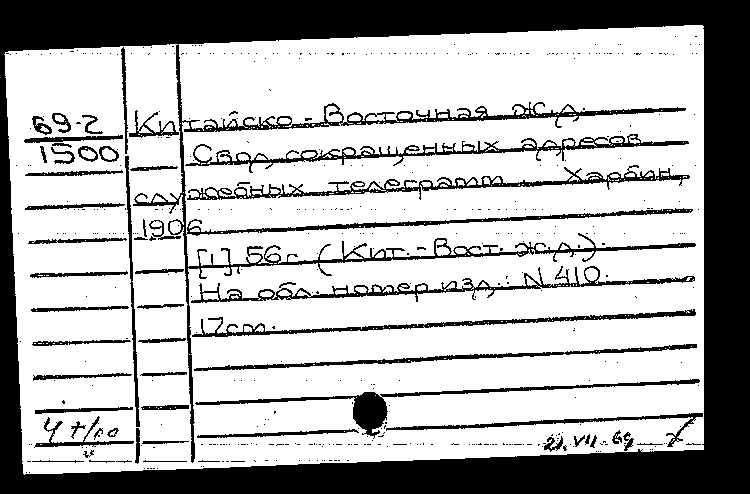 69-2 Китайско-Восточная ж.д.
1500 Свод сокращенных адресов
служебных телеграмм. Харбин,
1906.
[1], 56с. (Кит.-Вост. ж.д.).
На обл. номер изд.: N 410.
17см.
21.VII-69.